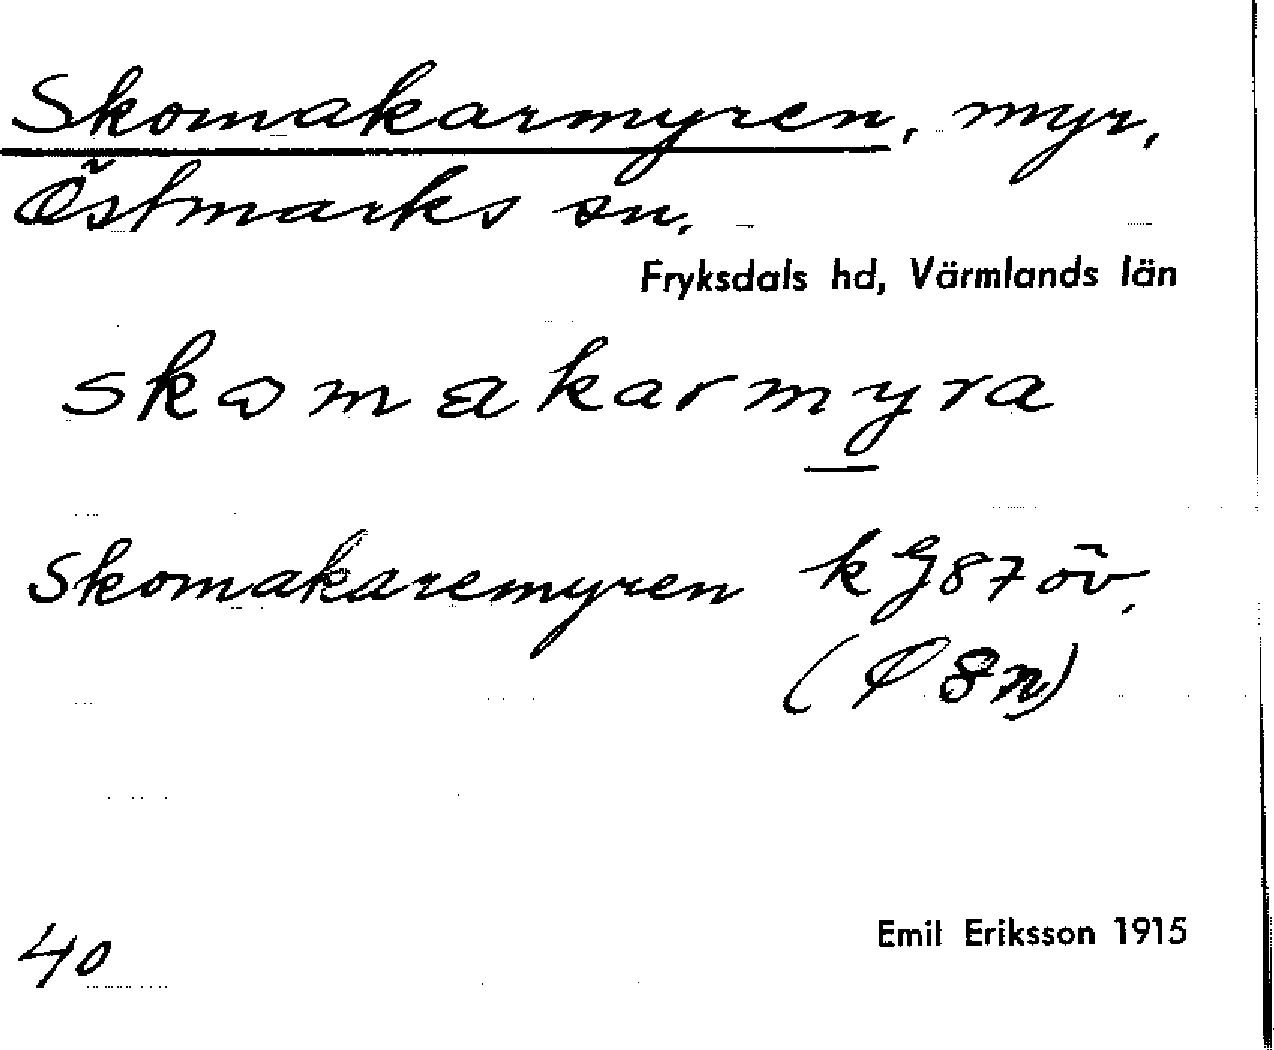 Skomakarmyren, myr,
Östmarks sn.
Fryksdals hd, Värmlands län
skomakarmyra
Skomakaremyren k G87 öv.
(Ø 8n)
40
Emil Eriksson 1915